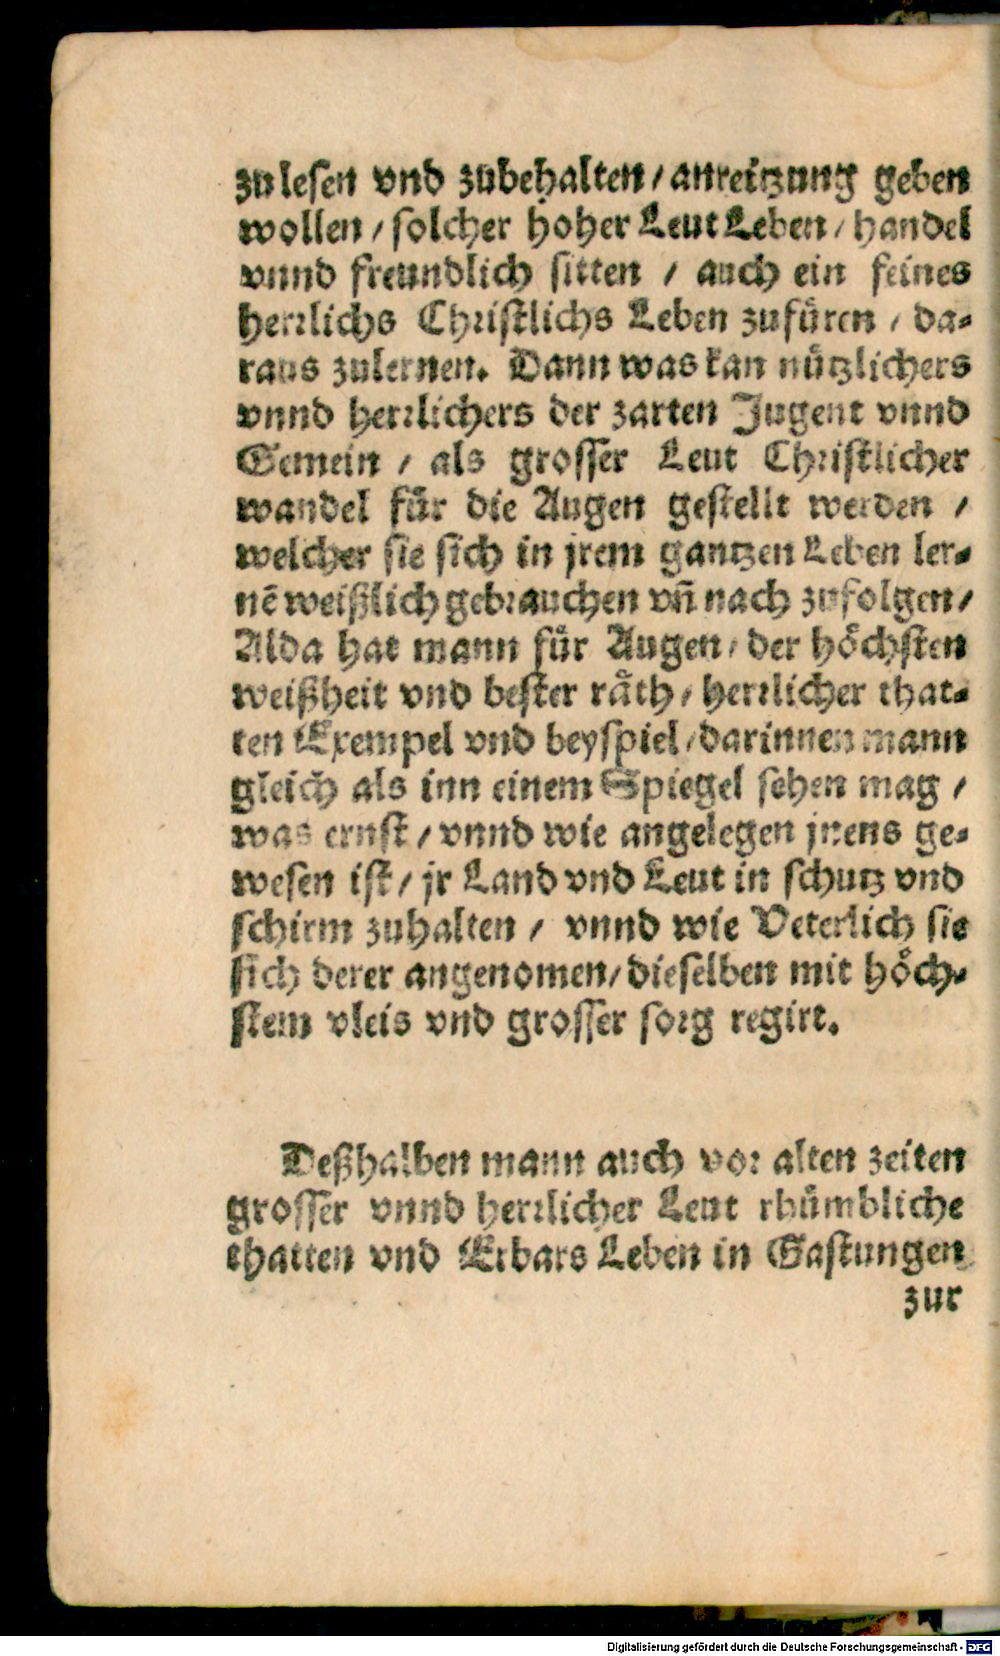 zu lesen vnd zubehalten / anreitzung geben
wollen / solcher hoher Leut Leben / handel
vnnd freundlich sitten / auch ein feines
herrlichs Christlichs Leben zufüren / da-
raus zulernen. Dann was kan nützlichers
vnnd herrlichers der zarten Jugent vnnd
Gemein / als grosser Leut Christlicher
wandel für die Augen gestellt werden /
welcher sie sich in jrem gantzen Leben ler-
nē weißlich gebrauchen vñ nach zufolgen /
Alda hat mann für Augen / der höchsten
weißheit vnd bester räth / herrlicher that-
ten Exempel vnd beyspiel / darinnen mann
gleich als inn einem Spiegel sehen mag /
was ernst / vnnd wie angelegen jnens ge-
wesen ist / jr Land vnd Leut in schutz vnd
schirm zuhalten / vnnd wie Veterlich sie
sich derer angenomen / dieselben mit höch-
stem vleis vnd grosser sorg regirt.
Deßhalben mann auch vor alten zeiten
grosser vnnd herrlicher Leut rhümbliche
thatten vnd Erbars Leben in Gastungen
zur
Digitalisierung gefördert durch die Deutsche Forschungsgemeinschaft - DFG